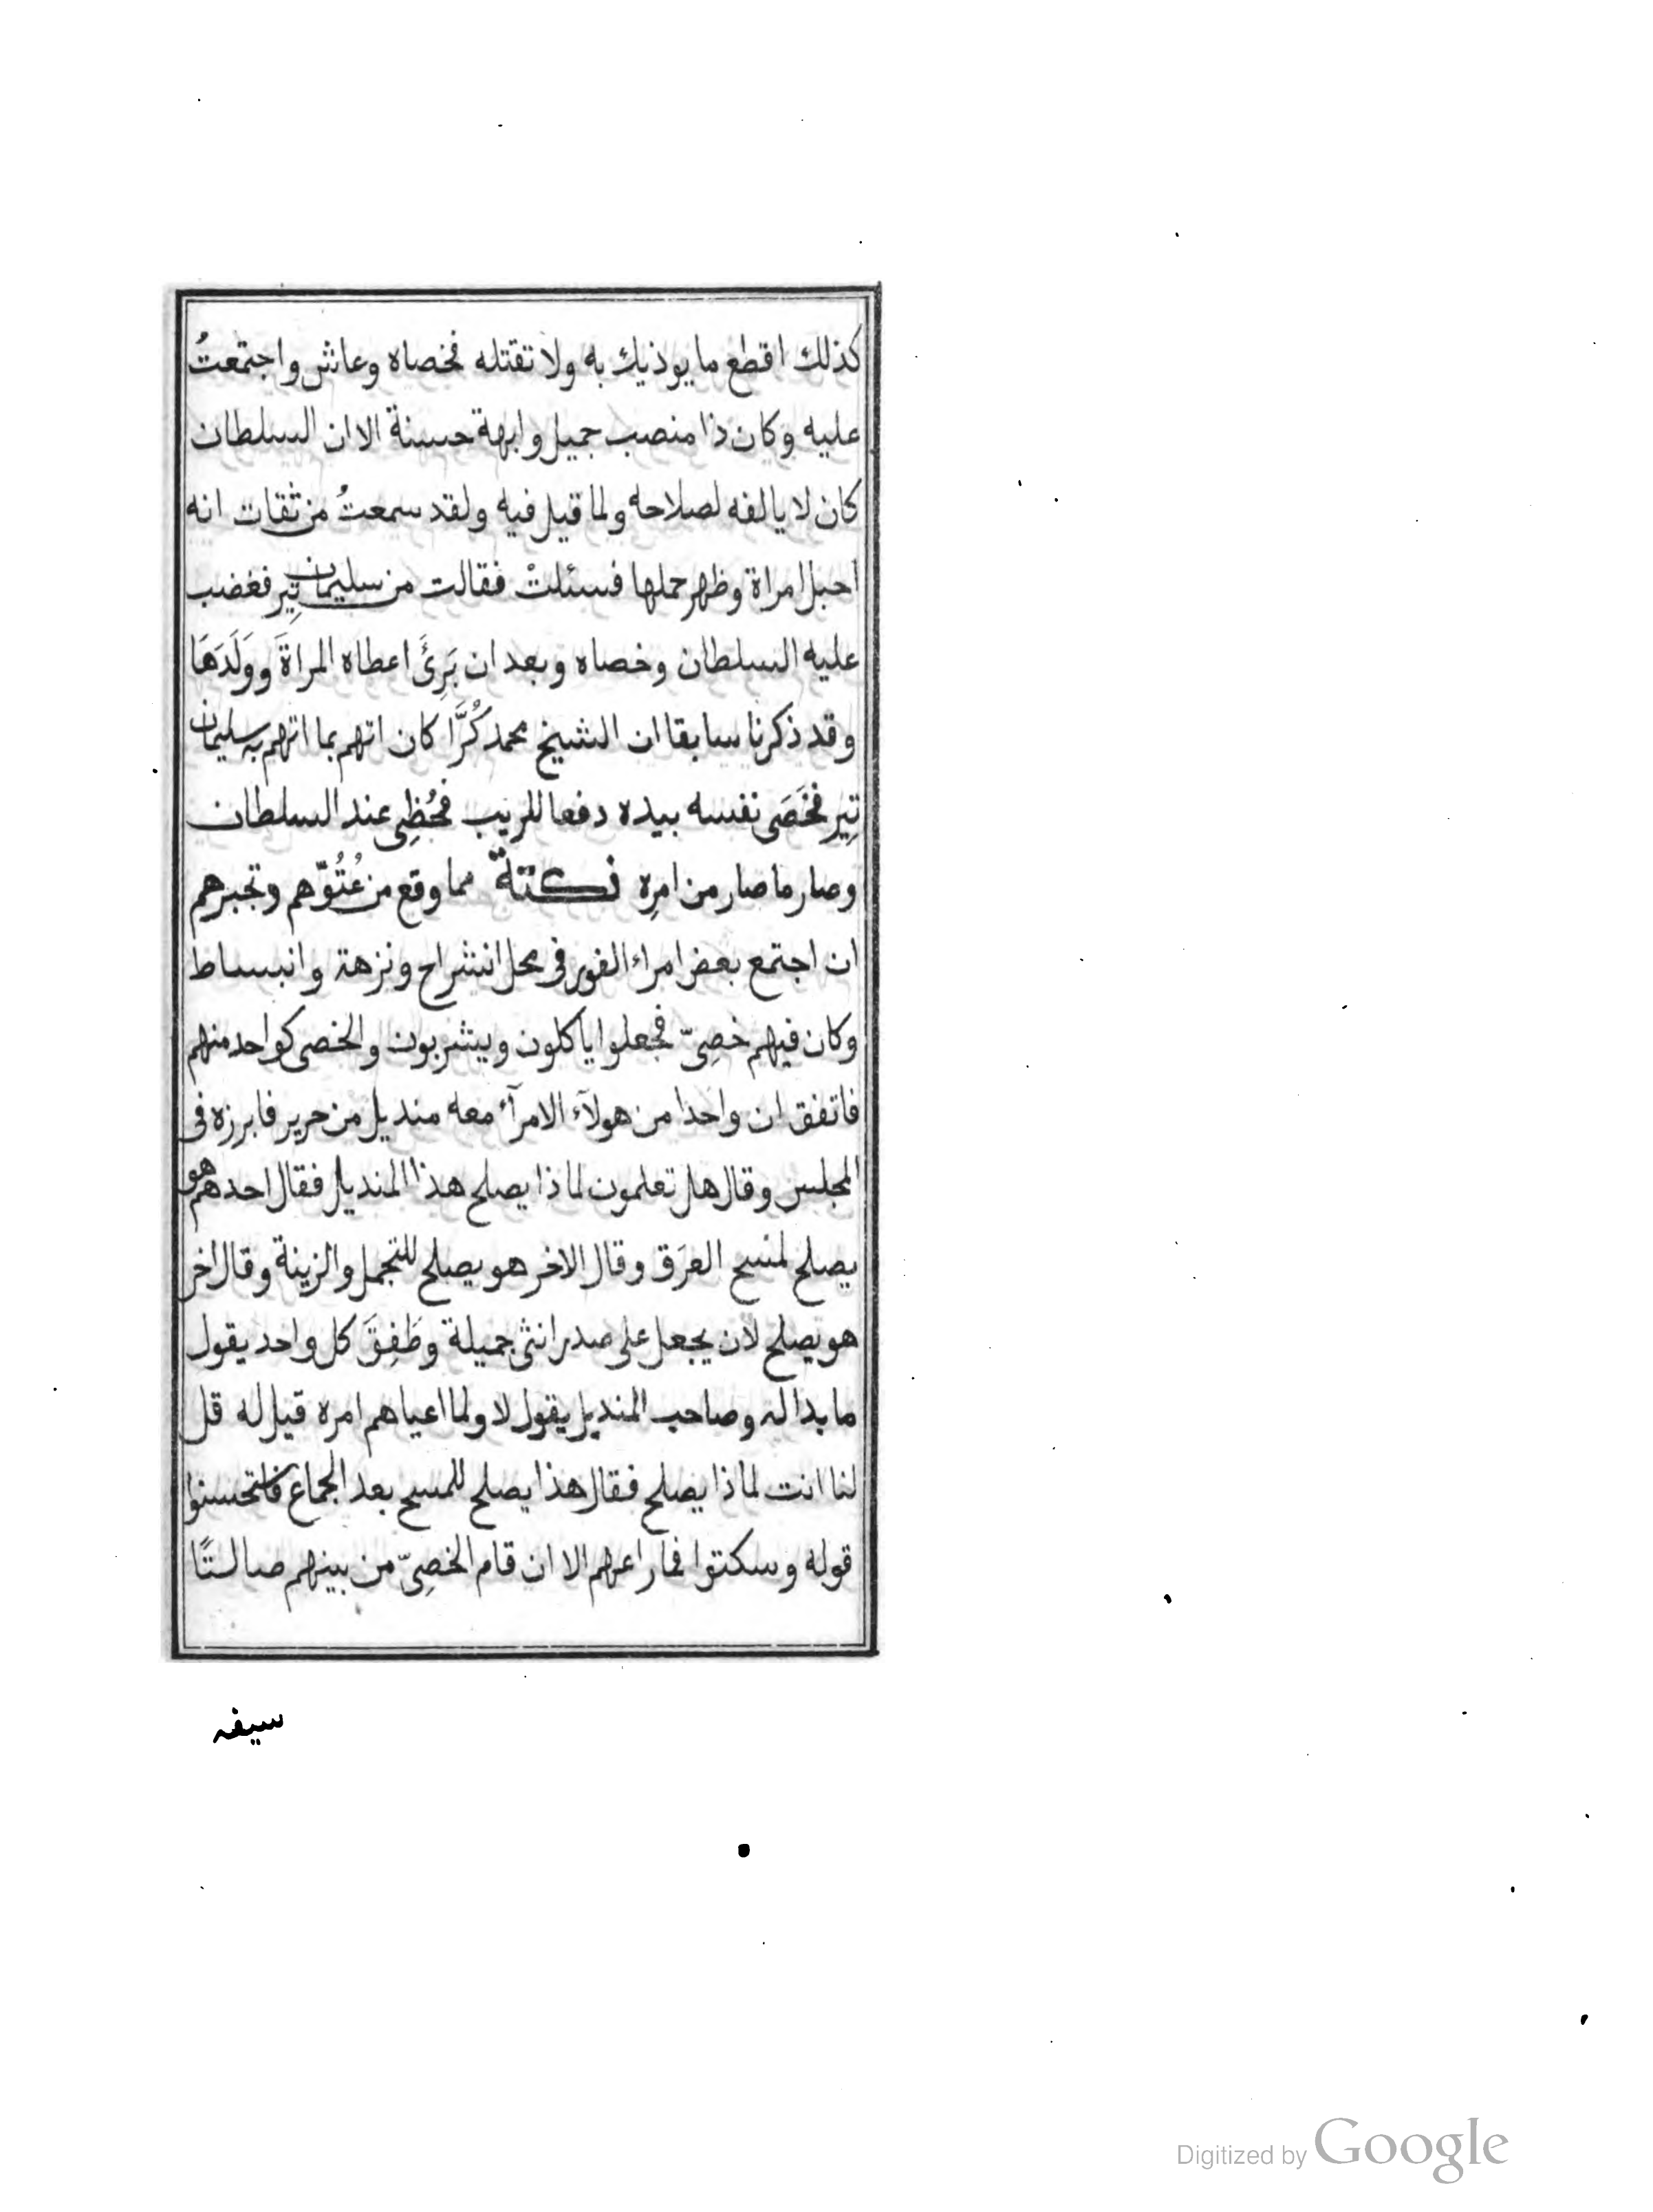 كذلك اقطع ما يوذيك به ولا تقتله فخصاه وعاش واجتمعتُ
عليه وكان ذا منصب جميل وابهة حسنة الا ان السلطان
كان لا يالفه لصلاحه ولما قيل فيه ولقد سمعتُ من ثقات انه
احبل امراة وظهر حملها فسئلتْ فقالت من سليمان تِير فغضب
عليه السلطان وخصاه وبعد ان بَرِئَ اعطاه المراةَ ووَلَدَهَا
وقد ذكرنا سابقا ان الشيخ محمد كُرَّا كان اتهم بما اتهم به سليمان
تِير فخَصَى نفسه بيده دفعا للريب فحُظِى عند السلطان
وصار ما صار من امرِه نكتة مما وقع من عُتُوّهم وتجبرهم
ان اجتمع بعض امراء الفور فى محل انشراح ونزهة وانبساط
وكان فيهم خصِىّ فجعلوا ياكلون ويشربون والخصى كواحد منهم
فاتفق ان واحدا من هولآء الامرآء معه منديل من حرير فابرزه فى
المجلس وقال هل تعلمون لماذا يصلح هذا المنديل فقال احدهم هو
يصلح لمسح العرَق وقال الاخر هو يصلح للتجمل والزينة وقال اخر
هو يصلح لان يجعل على صدر انثى جميلة وطَفِقَ كل واحد يقول
ما بدا له وصاحب المنديل يقول لا ولما اعياهم امره قيل له قل
لنا انت لماذا يصلح فقال هذا يصلح للمسح بعد الجماع فاستحسنوا
قوله وسكتوا فما راعهم الا ان قام الخصِىّ من بينهم صالتًا
سيفه
Digitized by Google